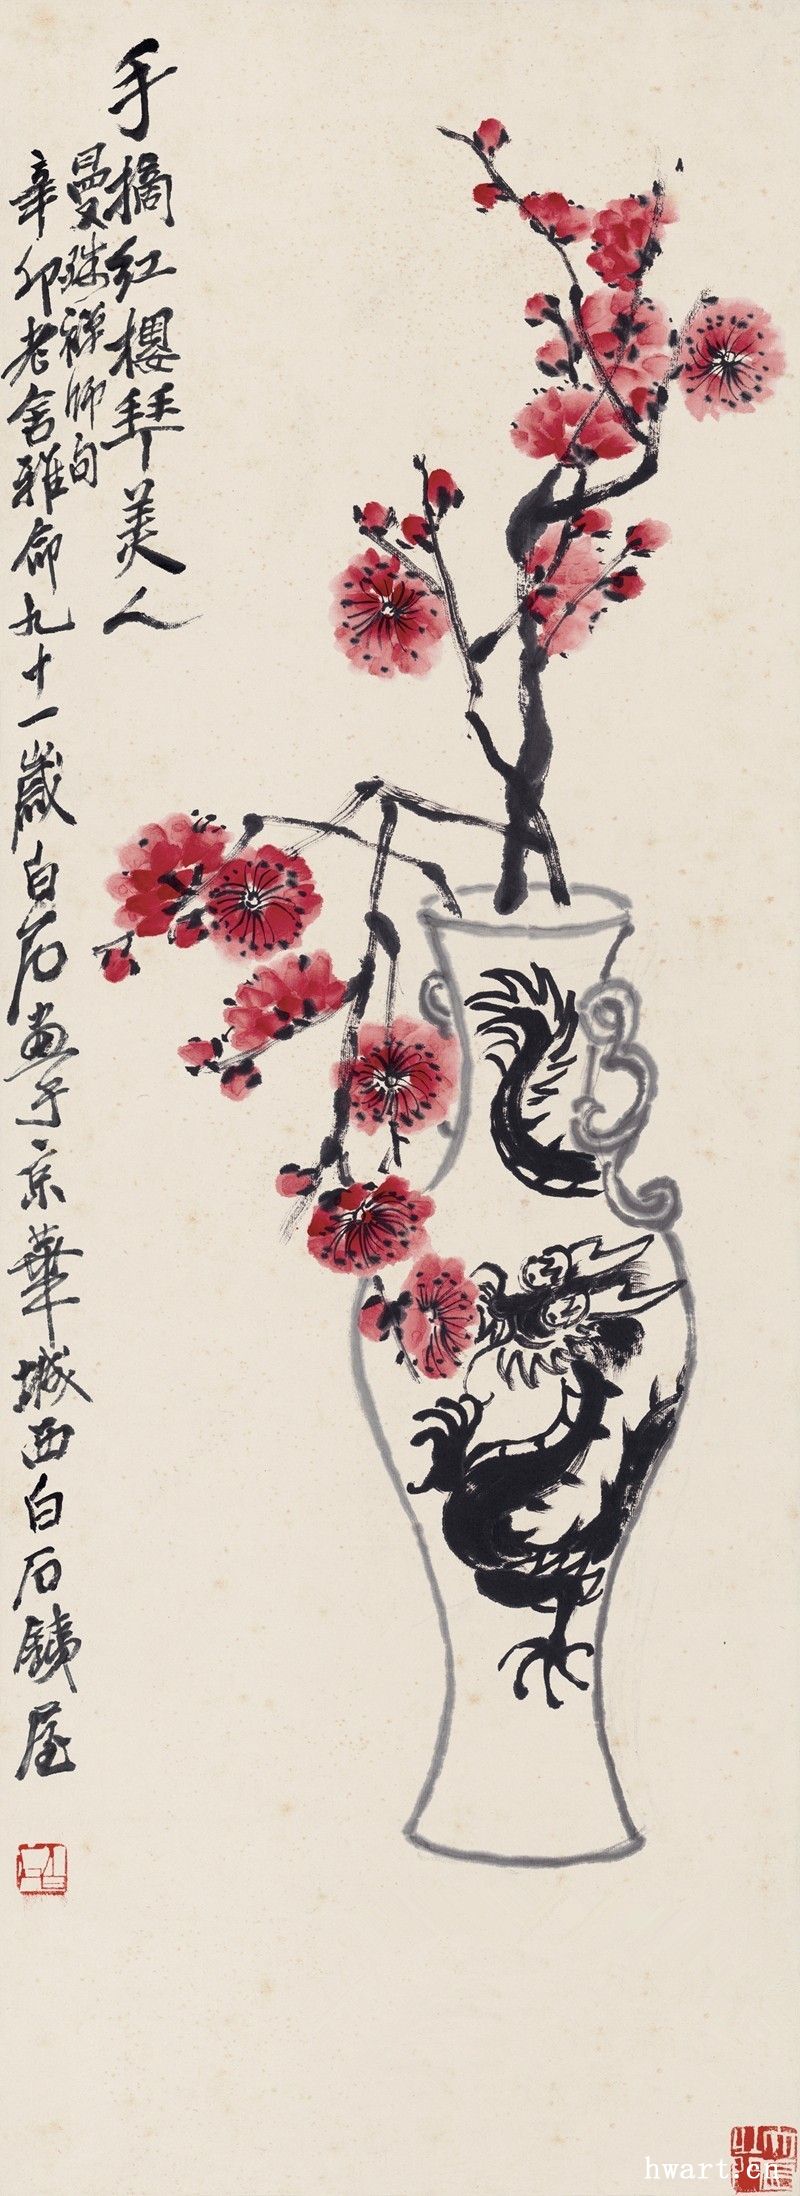 手摘红樱拜美人
曼殊禅師句
辛卯老舍雅命九十一歲白石畫于京華城西白石鐵屋
hwart.cn